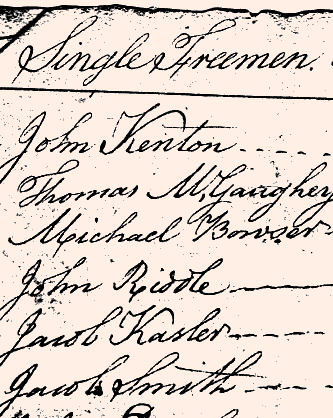 Single Freemen.
John Kenton
Thomas McGaughey
Michael Bowser
John Riddle
Jacob Kasler
Jacob Smith